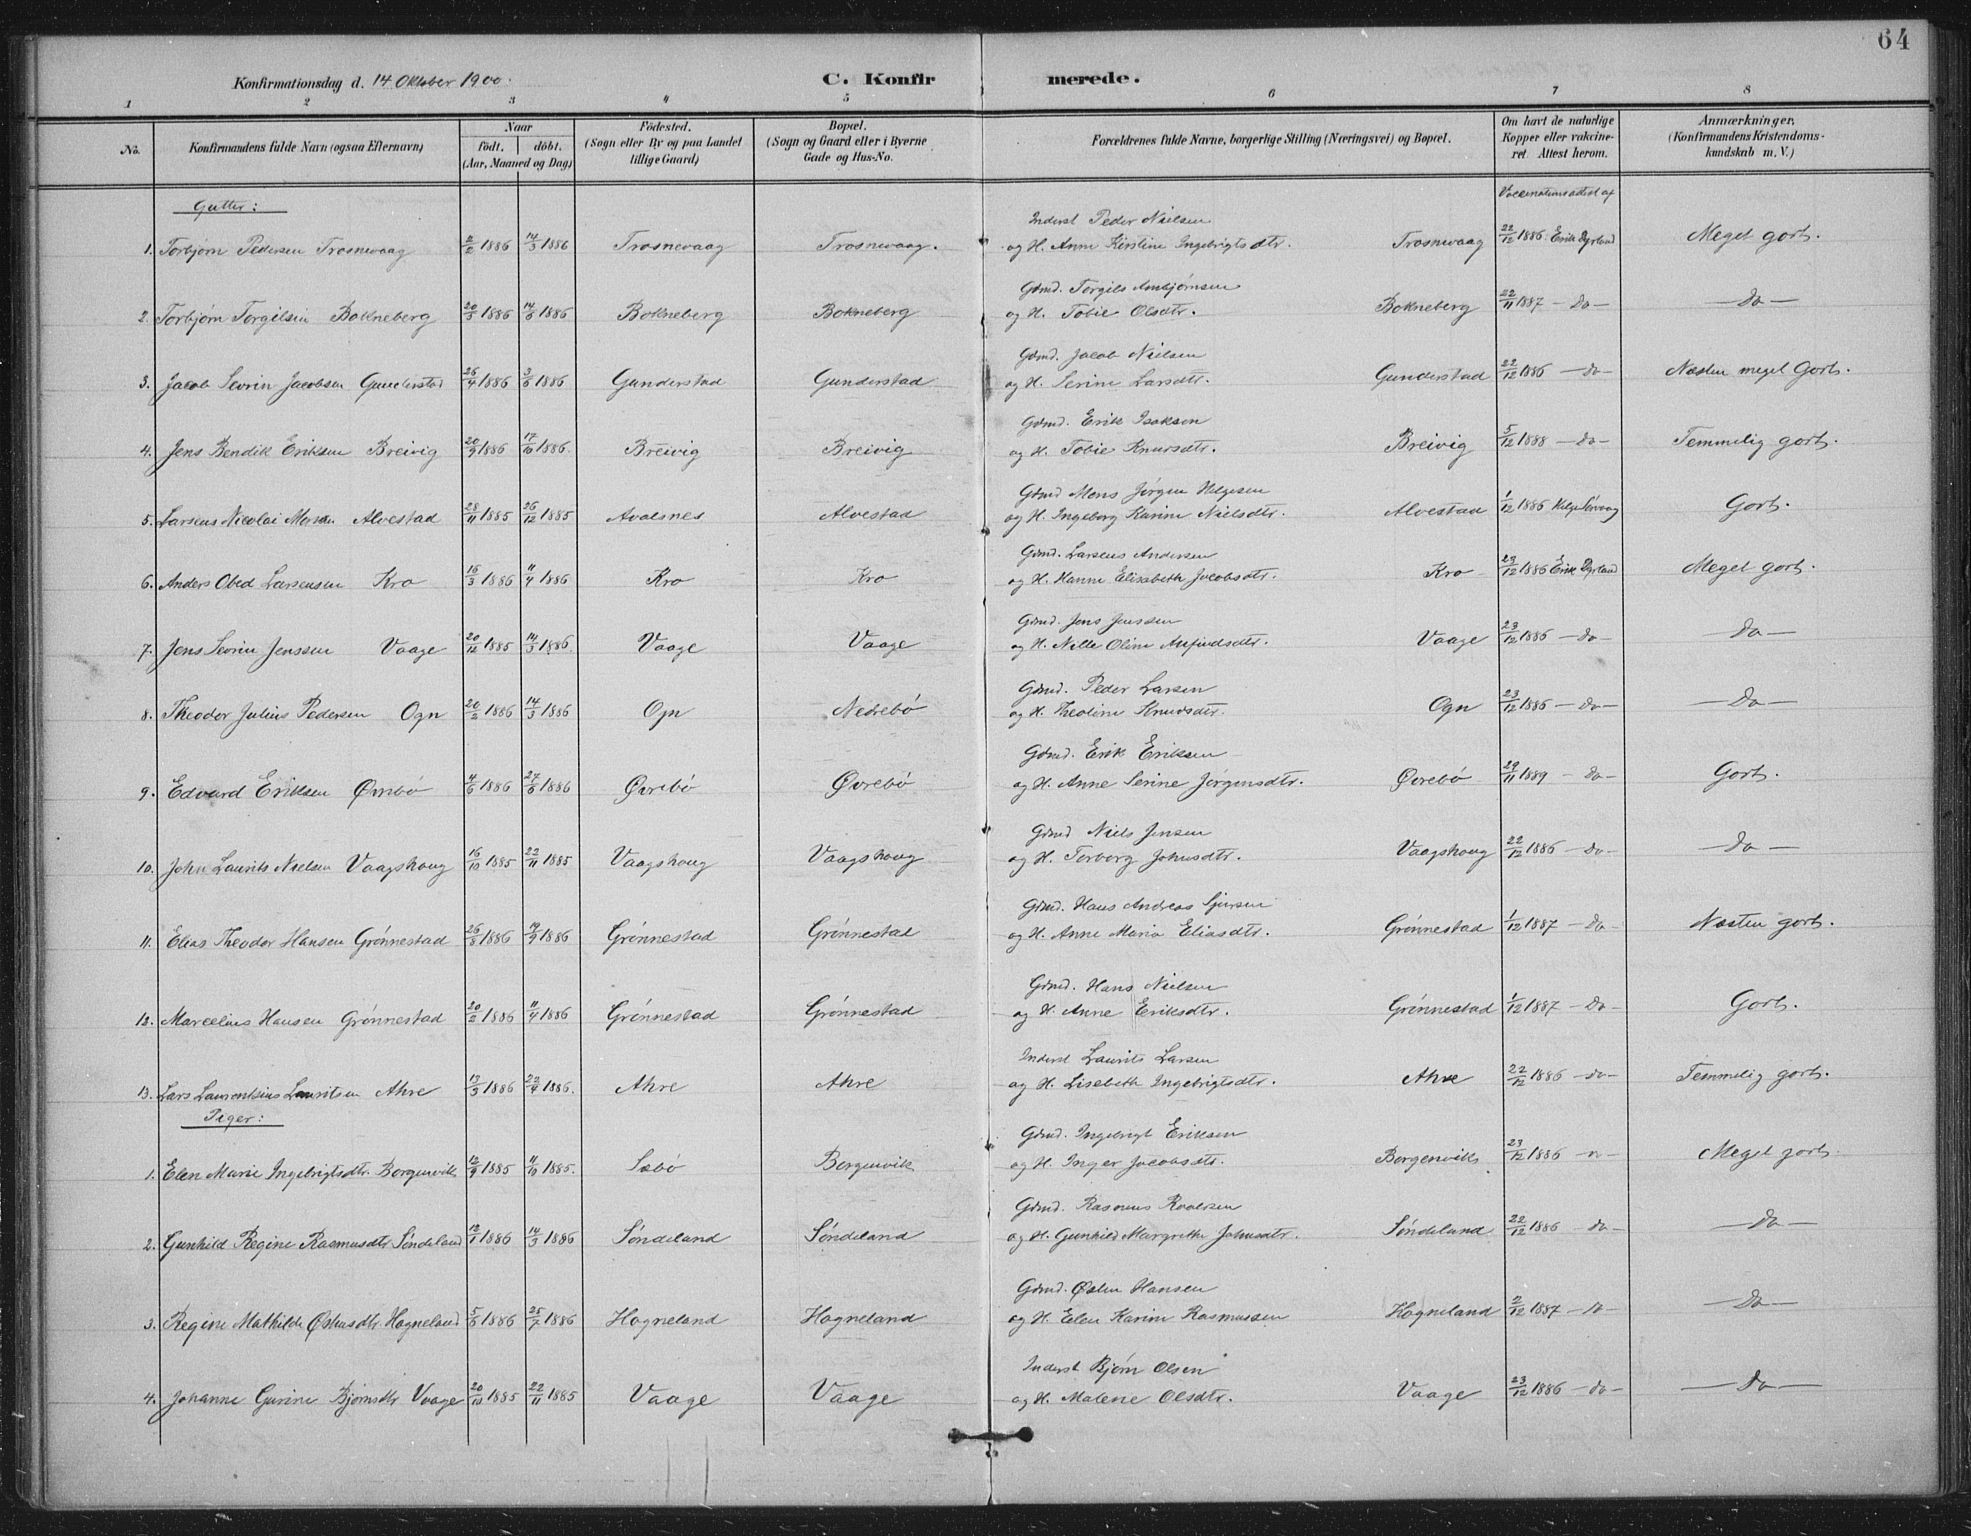 64
Konfirmationsdag d. 14 Oktober 1900.
C. Konfirmerede.
1 2 3 4 5 6 7 8
No.
Konfirmandens fulde Navn (ogsaa Efternavn)
Naar
født. døbt.
(Aar, Maaned og Dag)
Fødested.
(Sogn eller By og paa Landet
tillige Gaard)
Bopæl.
(Sogn og Gaard eller i Byerne
Gade og Hus-No.
Forældrenes fulde Navne, borgerlige Stilling (Næringsvei) og Bopæl.
Om havt de naturlige
Kopper eller vakcine-
ret Attest herom.
Anmærkninger,
(Konfirmandens Kristendoms-
kundskab m. V.)
Gutter:
Vaccinationsattest af
Inderst Peder Nielsen
1. Torbjørn Pedersen Trosnevaag 2/2 1886 14/3 1886 Trosnevaag Trosnevaag. og H. Anne Kirstine Ingebrigtsdtr. Trosnevaag 22/12 1886 Erik Dyrland Meget godt.
Gdmd. Torgils Anbjørnsen
2. Torbjørn Torgilsen Bokneberg 20/3 1886 14/6 1886 Bokneberg Bokneberg og H. Tobie Olsdtr. Bokneberg 22/11 1887 — do — — do —
Gdmd. Jacob Nielsen
3. Jacob Sevrin Jacobsen Gunderstad 26/4 1886 3/6 1886 Gunderstad Gunderstad og H. Serine Larsdtr. Gunderstad 22/12 1886 — do — Næsten meget Godt.
Gdmd. Erik Isaksen
4. Jens Bendik Eriksen Breivig 20/9 1886 17/10 1886 Breivig Breivig og H. Tobie Knutsdtr. Breivig 5/12 1888 — do — Temmelig godt.
Gdmd Mons Jørgen Helgesen
5. Larsens Nicolai Monsen Alvestad 28/11 1885 26/12 1885 Avalsnes Alvestad og H. Ingeborg Karine Nielsdtr. Alvestad 1/12 1886 Helge Sørvaag Godt.
Gdmd. Larsens Andersen
6. Anders Obed Larsensen Kro 16/3 1886 11/4 1886 Kro Kro og H. Hanne Elisabeth Jacobsdtr. Kro 29/12 1886 Erik Dyrland Meget godt.
Gdmd. Jens Jenssen
7. Jens Sevrin Jenssen Vaage 20/12 1885 14/3 1886. Vaage Vaage og H. Nille Oline Anfindsdtr. Vaage 23/12 1886 — do — — do —
Gdmd. Peder Larsen
8. Theodor Julius Pedersen Ogn 20/2 1886 14/3 1886 Ogn Nedrebø og H. Theoline Knudsdtr. Ogn 23/12 1886 — do — — Do —
Gdmd. Erik Eriksen
9. Edvard Eriksen Øvrebø 4/6 1886 27/6 1886 Øvrebø Øvrebø og H. Anne Serine Jørgensdtr. Øvrebø 29/11 1889 — do — Godt.
Gdmd Niels Jensen
10. John Laurits Nielsen Vaagshoug 16/10 1885 22/11 1885 Vaagshoug Vaagshoug og H. Torborg Johnsdtr. Vaagshoug 22/12 1886 — do — — Do —
Gdmd. Hans Andreas Sjursen
11. Elias Theodor Hansen Grønnestad 26/8 1886 19/9 1886 Grønnestad Grønnestad og H. Anne Maria Eliasdtr. Grønnestad 1/12 1887 — do — Næsten godt.
Gdmd. Hans Nielsen
12. Marcelius Hansen Grønnestad 20/2 1886 11/4 1886 Grønnestad Grønnestad og H. Anne Eriksdtr. Grønnestad 1/12 1887 — do — Godt.
Inderst Laurits Larsen
13. Lars Laurentsius Lauritsen Ahre 19/3 1886 22/4 1886. Ahre Ahre og H. Lisebeth Ingebrigtsdtr. Ahre 22/12 1886 — do — Temmelig godt.
Piger:
Gdmd. Ingebrigt Eriksen
1. Elen Marie Ingebrigtsdtr. Borgenvik 12/9 1885 11/10 1885. Sæbø Borgenvik og H. Inger Jacobsdtr. Borgenvik 23/12 1886 Meget godt.
Gdmd. Rasmus Roalesen
2. Gunhild Regine Rasmusdtr Søndeland 12/1 1886 14/3 1886 Søndeland Søndeland og H. Gunhild Margrethe Johnsdtr. Søndeland 22/12 1886 — do — — Do —
Gdmd. Østen Hansen
3. Regine Mathilde Østensdtr. Hogneland 5/6 1886 25/7 1886 Hogneland Hogneland og H. Elen Karine Rasmussen Hogneland 2/12 1887 — do — — Do —
Inderst Bjørn Olsen
4. Johanne Gurine Bjørnsdtr Vaage 20/10 1885 22/11 1885 Vaage Vaage og H. Malene Olsdtr. Vaage 23/12 1886 — do — — Do —